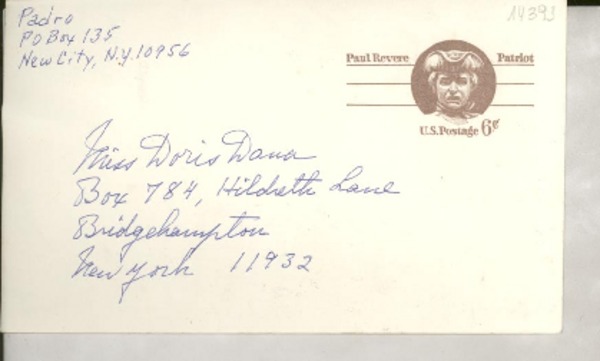 Padro
PO Box 135
New City, N.Y. 10956
14393
Paul Revere Patriot
U.S. Postage 6¢
Miss Doris Dana
Box 784, Hildreth Lane
Bridgehampton
New York 11932